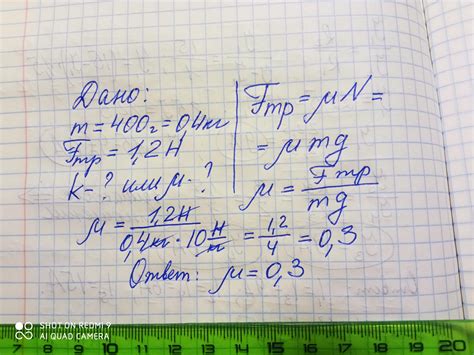 Дано:
m = 400г = 0,4кг
Fтр = 1,2Н
k-? или μ-?
Fтр = μN =
= μmg
μ = Fтр/mg
μ = 1,2Н/0,4кг·10Н/кг = 1,2/4 = 0,3
Ответ: μ = 0,3
SHOT ON REDMI 9
AI QUAD CAMERA
7 8 9 10 11 12 13 14 15 16 17 18 19 20